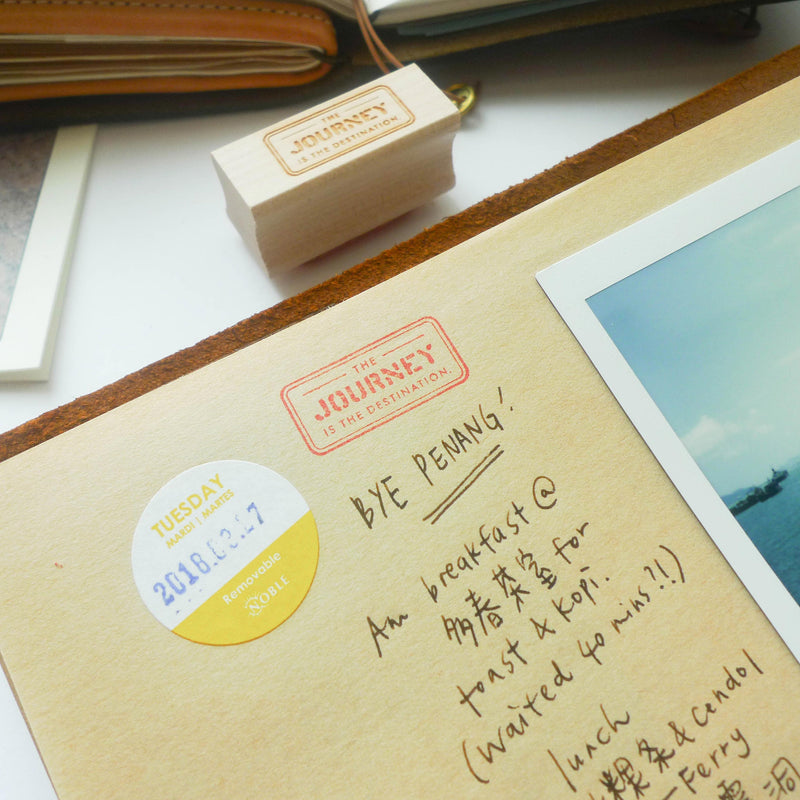 THE
JOURNEY
IS THE DESTINATION.
THE
JOURNEY
IS THE DESTINATION.
TUESDAY
MARDI | MARTES
Removable
NOBLE
BYE PENANG!
Am breakfast @
多春茶室 for
toast & kopi.
(waited 40 mins?!)
lunch
粿条 & cendol
Ferry
洞